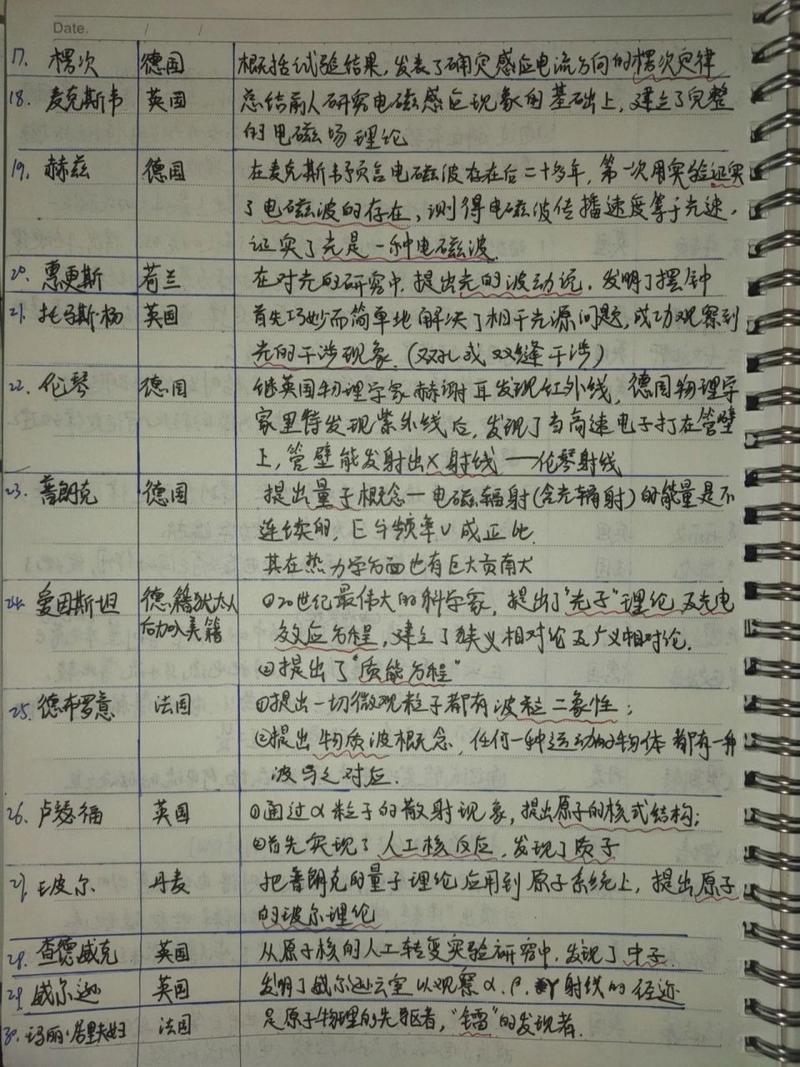 Date. / /
17. 楞次 德国 概括试验结果,发表了确定感应电流方向的楞次定律
18. 麦克斯韦 英国 总结前人研究电磁感应现象的基础上,建立了完整
的电磁场理论
19. 赫兹 德国 在麦克斯韦预言电磁波存在后二十多年,第一次用实验证实
了电磁波的存在,测得电磁波传播速度等于光速,
证实了光是一种电磁波.
20. 惠更斯 荷兰 在对光的研究中,提出光的波动说,发明了摆钟
21. 托马斯·杨 英国 首先巧妙而简单地解决了相干光源问题,成功观察到
光的干涉现象.(双孔或双缝干涉)
22. 伦琴 德国 继英国物理学家赫谢耳发现红外线,德国物理学
家里特发现紫外线后,发现了当高速电子打在管壁
上,管壁能发射出X射线——伦琴射线
23. 普朗克 德国 提出量子概念—电磁辐射(含光辐射)的能量是不
连续的,E与频率υ成正比.
其在热力学方面也有巨大贡献
24. 爱因斯坦 德籍犹太人 ①20世纪最伟大的科学家,提出了"光子"理论及光电
后加入美籍 效应方程,建立了狭义相对论及广义相对论.
②提出了"质能方程"
25. 德布罗意 法国 ①提出一切微观粒子都有波粒二象性;
②提出物质波概念,任何一种运动的物体都有一种
波与之对应.
26. 卢瑟福 英国 ①通过α粒子的散射现象,提出原子的核式结构;
②首先实现了人工核反应,发现了质子
27. 玻尔 丹麦 把普朗克的量子理论应用到原子系统上,提出原子
的玻尔理论
28. 查德威克 英国 从原子核的人工转变实验研究中,发现了中子.
29. 威尔逊 英国 发明了威尔逊云室以观察α、β、γ射线的径迹
30. 玛丽·居里夫妇 法国 是原子物理的先驱者,"镭"的发现者.